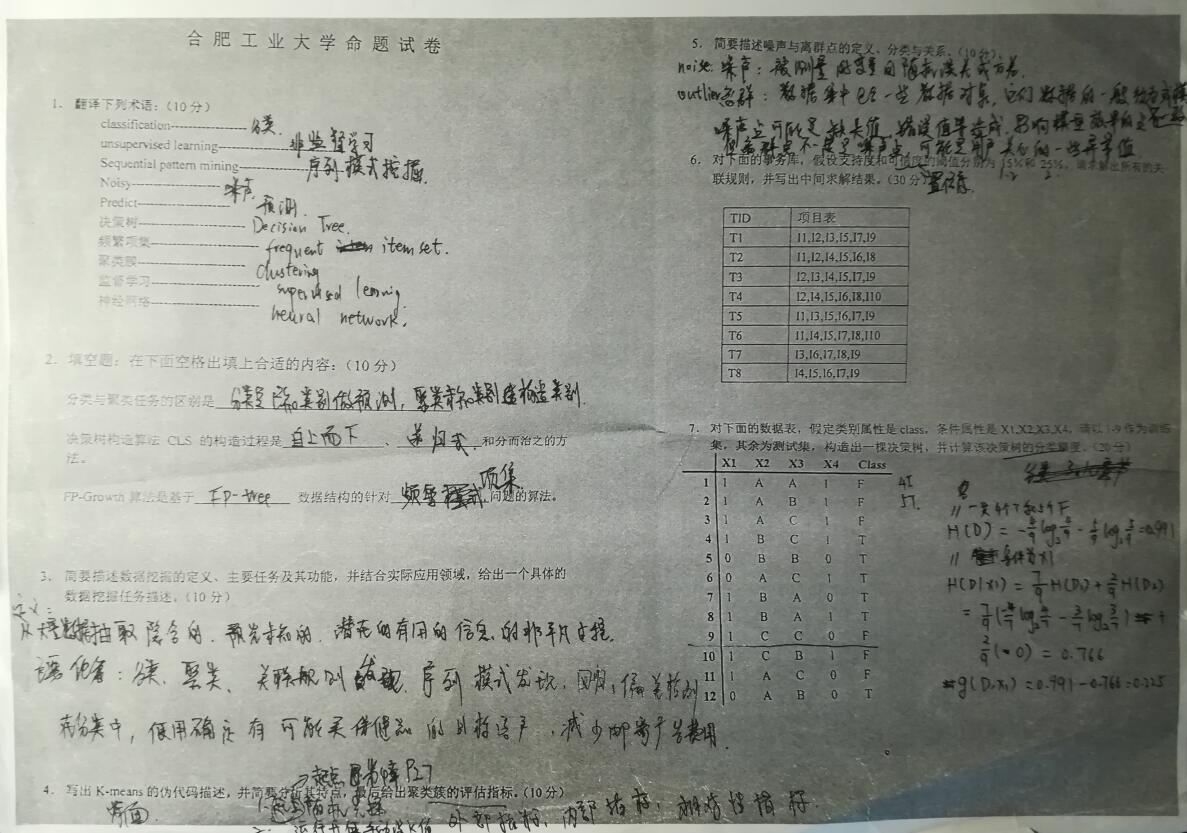 合肥工业大学命题试卷
1. 翻译下列术语：（10分）
classification------------------- 分类.
unsupervised learning---------------- 非监督学习
Sequential pattern mining------------- 序列模式挖掘
Noisy--------------------- 噪声
Predict----------------------- 预测.
决策树-------------------------- Decision Tree.
频繁项集------------------------ frequent item set.
聚类簇------------------------- clustering
监督学习----------------------- supervised learning
神经网络----------------------- neural network.
2. 填空题：在下面空格出填上合适的内容：（10分）
分类与聚类任务的区别是 分类是已知类别做预测，聚类未知类别 构造类别.
决策树构造算法 CLS 的构造过程是 自上而下 、 递归式 和分而治之的方
法。
项集
FP-Growth 算法是基于 FP-tree 数据结构的针对 频繁 问题的算法。
3. 简要描述数据挖掘的定义、主要任务及其功能，并结合实际应用领域，给出一个具体的
数据挖掘任务描述。（10分）
定义：
从大量数据抽取隐含的、预先未知的、潜在的有用的信息的非平凡过程.
任务：分类、聚类、关联规则发现、序列模式发现、回归、偏差检测
在分类中，使用确定有可能买 的目标客户，减少邮寄广告费用.
4. 写出 K-means 的伪代码描述，并简要分析其特点，最后给出聚类簇的评估指标。（10分）
背面
外部指标，内部指标，相对性指标.
5. 简要描述噪声与离群点的定义、分类与关系。（10分）
noise: 噪声：被测量的变量的随机误差或方差.
outlier 离群：数据集中包含一些数据对象，它们 数据的一般
噪声点可能是缺失值，错误值等造成，影响模型效果
但离群点不一定是噪声点，可能是用户 的一些异常值.
6. 对下面的事务库，假设支持度和可信度的阈值分别为 15%和 25%，请求解出所有的关
联规则，并写出中间求解结果。（30分）
置信度
TID 项目表
T1 I1,I2,I3,I5,I7,I9
T2 I1,I2,I4,I5,I6,I8
T3 I2,I3,I4,I5,I7,I9
T4 I2,I4,I5,I6,I8,I10
T5 I1,I3,I5,I6,I7,I9
T6 I1,I4,I5,I7,I8,I10
T7 I3,I6,I7,I8,I9
T8 I4,I5,I6,I7,I9
7. 对下面的数据表，假定类别属性是 class，条件属性是 X1,X2,X3,X4，请以 1-9 作为训练
集，其余为测试集，构造出一棵决策树，并计算该决策树的分类精度。（20分）
X1 X2 X3 X4 Class
1 1 A A 1 F
2 1 A B 1 F
3 1 A C 1 F
4 1 B C 1 T
5 0 B B 0 T
6 0 A C 1 T
7 1 B A 0 T
8 1 B A 1 T
9 1 C C 0 F
10 1 C B 1 F
11 1 A C 0 F
12 0 A B 0 T
4F
5T.
H(D) = -4/9 log₂ 4/9 - 5/9 log₂ 5/9 = 0.991
H(D|X1) = 7/9 H(D₁) + 2/9 H(D₂)
= 7/9 (-4/7 log₂ 4/7 - 3/7 log₂ 3/7) +
2/9 (-0) = 0.766
g(D,X1) = 0.991-0.766=0.225